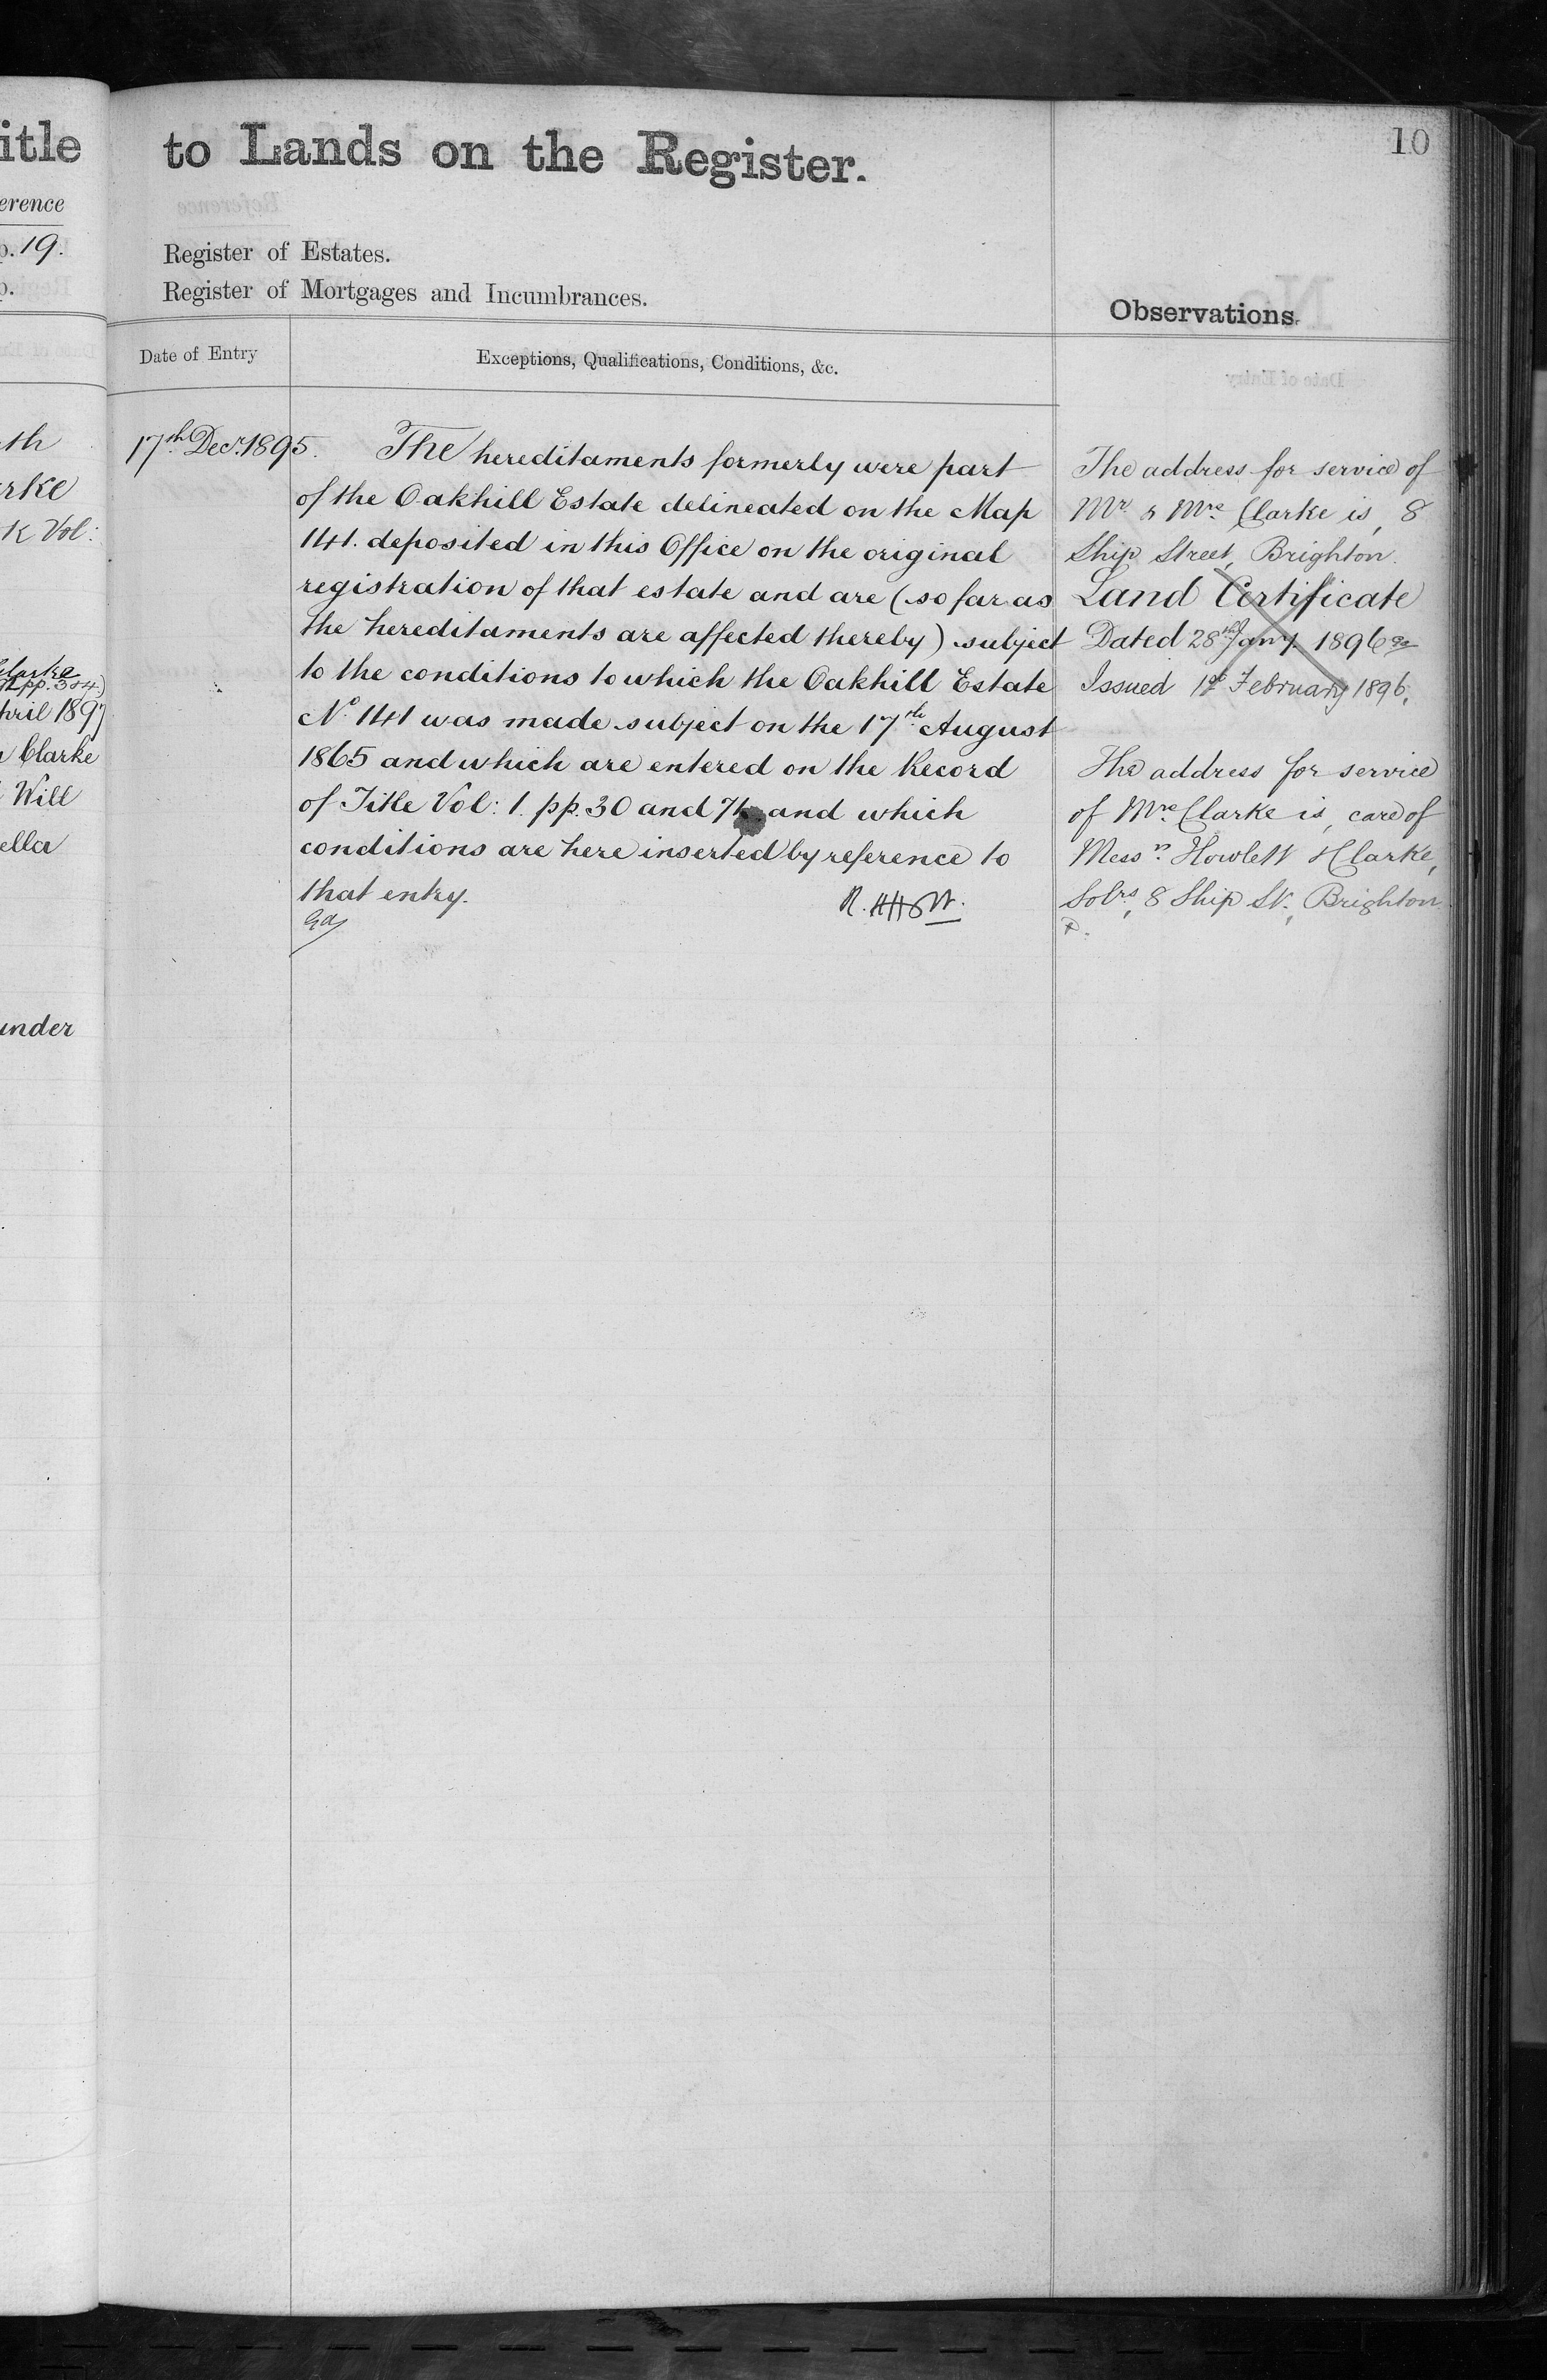 itle
erence
p. 19.
p.
th
rke
k Vol:
Clarke
pp. 3 & 4)
April 1897
Clarke
Will
ella
under
to Lands on the Register.
10
Register of Estates.
Register of Mortgages and Incumbrances.
Observations.
Date of Entry
Exceptions, Qualifications, Conditions, &c.
17th Decr. 1895.
The hereditaments formerly were part
of the Oakhill Estate delineated on the Map
141. deposited in this Office on the original
registration of that estate and are (so far as
the hereditaments are affected thereby) subject
to the conditions to which the Oakhill Estate
No. 141 was made subject on the 17th August
1865 and which are entered on the Record
of Title Vol: 1. pp. 30 and 74 and which
conditions are here inserted by reference to
that entry.
The address for service of
Mr. & Mrs. Clarke is, 8
Ship Street, Brighton.
Land Certificate
Dated 28th Jany. 1896
Issued 1st February 1896.
The address for service
of Mrs. Clarke is, care of
Messrs. Howlett & Clarke,
Solrs, 8 Ship St., Brighton.